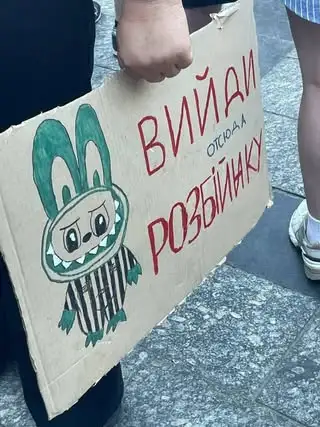 ВИЙДИ
ОТСЮДА
РОЗБІЙНИКУ